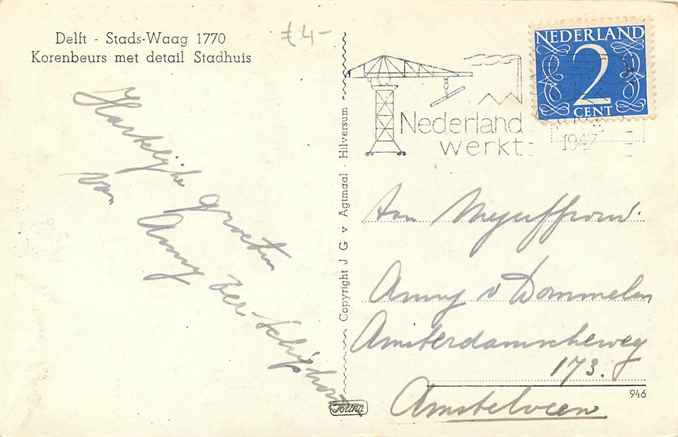 Delft - Stads-Waag 1770
Korenbeurs met detail Stadhuis
£4-
Hartelijke groeten
van Anny
Copyright J G v Agtmaal - Hilversum
NEDERLAND
2
CENT
Nederland
werkt
1947
Aan Mejuffrouw
Anny v Dommelen
Amsterdamscheweg
173.
Amstelveen
946